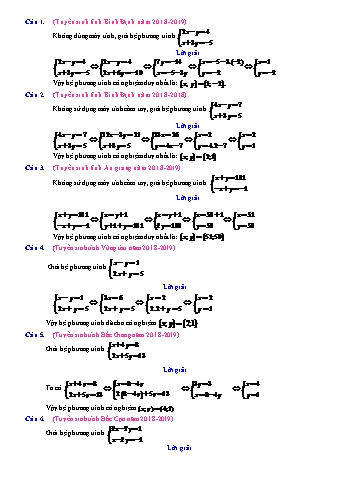 Câu 1. (Tuyển sinh tỉnh Bình Định năm 2018-2019)
Không dùng máy tính, giải hệ phương trình {2x−y=4 x+3y=−5
Lời giải
{2x−y=4 x+3y=−5 ⇔ {2x−y=4 2x+6y=−10 ⇔ {7y=−14 x=−5−3y ⇔ {x=−5−3.(−2) y=−2 ⇔ {x=1 y=−2
Vậy hệ phương trình có nghiệm duy nhất là: (x; y)=(1;−2).
Câu 2. (Tuyển sinh tỉnh Bình Định năm 2018-2018)
Không sử dụng máy tính cầm tay, giải hệ phương trình {4x−y=7 x+3y=5
Lời giải
{4x−y=7 x+3y=5 ⇔ {12x−3y=21 x+3y=5 ⇔ {13x=26 y=4x−7 ⇔ {x=2 y=4.2−7 ⇔ {x=2 y=1
Vậy hệ phương trình có nghiệm duy nhất là: (x; y)=(2;1)
Câu 3. (Tuyển sinh tỉnh An giang năm 2018-2019)
Không sử dụng máy tính cầm tay, giải hệ phương trình {x+y=101 −x+y=−1
Lời giải
{x+y=101 −x+y=−1 ⇔ {x=y+1 y+1+y=101 ⇔ {x=y+1 2y=100 ⇔ {x=50+1 y=50 ⇔ {x=51 y=50
Vậy hệ phương trình có nghiệm duy nhất là: (x; y)=(51;50)
Câu 4. (Tuyển sinh tỉnh Vũng tàu năm 2018-2019)
Giải hệ phương trình {x−y=1 2x+y=5
Lời giải
{x−y=1 2x+y=5 ⇔ {3x=6 2x+y=5 ⇔ {x=2 2.2+y=5 ⇔ {x=2 y=1
Vậy hệ phương trình đã cho có nghiệm (x; y)=(2;1)
Câu 5. (Tuyển sinh tỉnh Bắc Giang năm 2018-2019)
Giải hệ phương trình {x+4y=8 2x+5y=13
Lời giải
Ta có {x+4y=8 2x+5y=13 ⇔ {x=8−4y 2(8−4y)+5y=13 ⇔ {3y=3 x=8−4y ⇔ {x=4 y=1
Vậy hệ phương trình có nghiệm (x; y)=(4;1)
Câu 6. (Tuyển sinh tỉnh Bắc Cạn năm 2018-2019)
Giải hệ phương trình {3x−2y=1 x−2y=−1
Lời giải